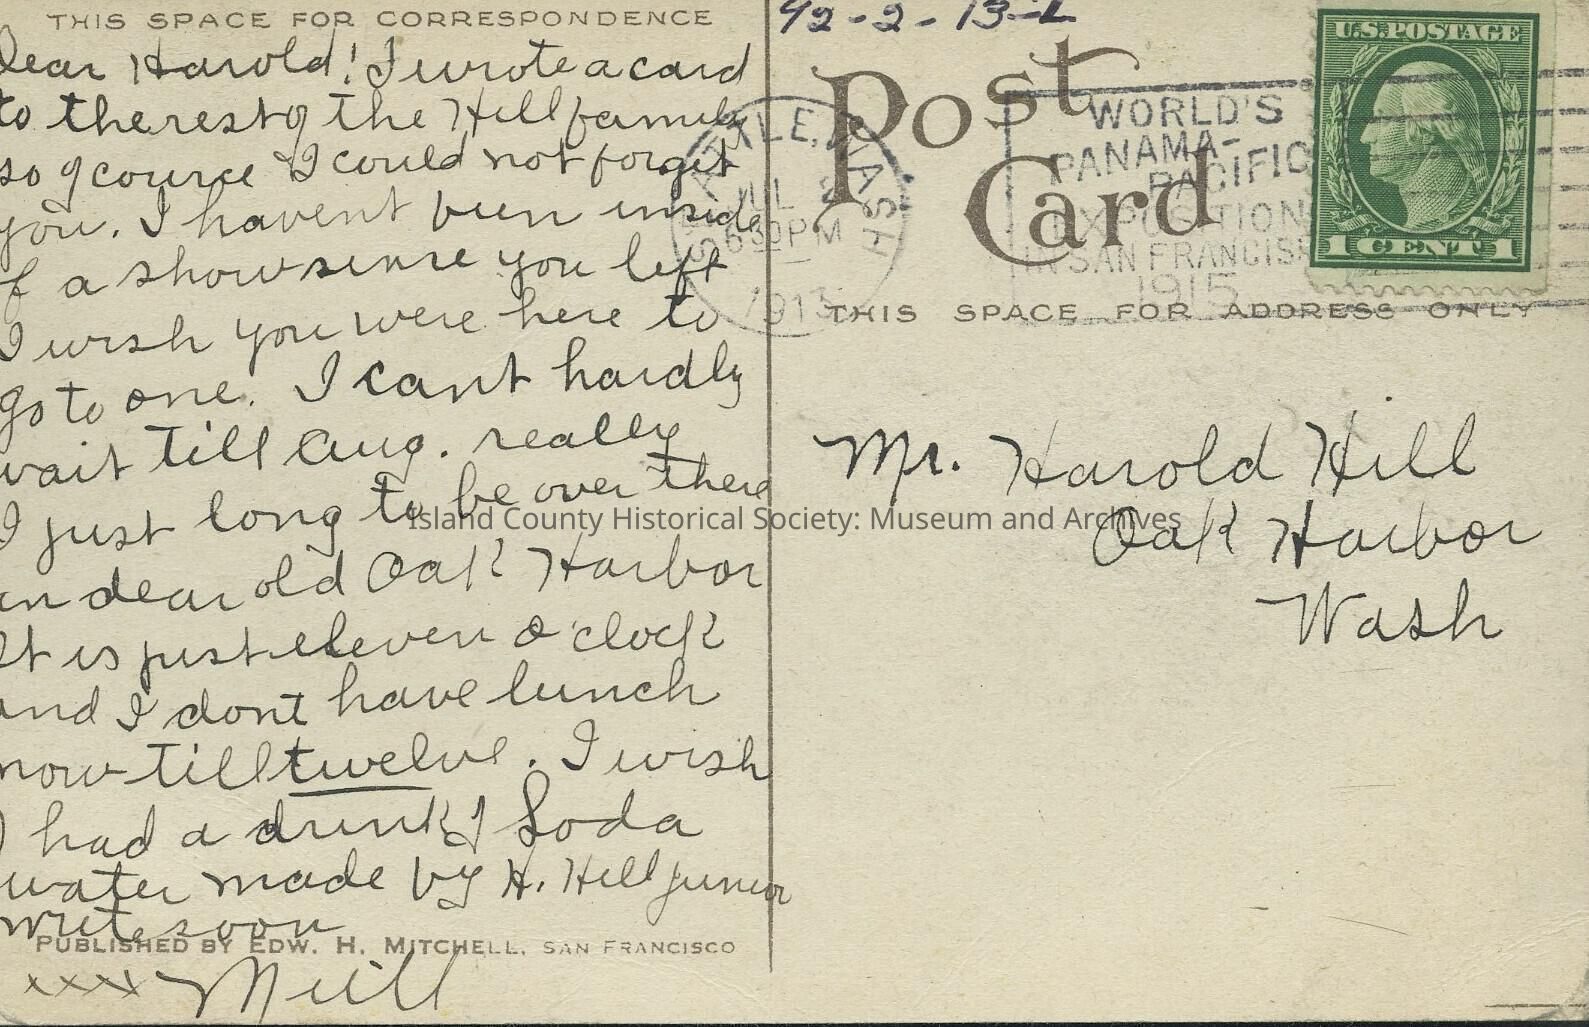 THIS SPACE FOR CORRESPONDENCE
Dear Harold! I wrote a card
to the rest of the Hill family
so of cource I could not forget
you. I havent been inside
of a show since you left
I wish you were here to
go to one. I cant hardly
wait till Aug. really
I just long to be over there
in dear old Oak Harbor
It is just eleven o'clock
and I dont have lunch
now till twelve. I wish
I had a drink of Soda
water made by H. Hill junior
write soon
PUBLISHED BY EDW. H. MITCHELL, SAN FRANCISCO
xxxx
92-2-13-L
Post
Card
SEATTLE, WASH
JUL
630PM
1913
WORLD'S
PANAMA-
PACIFIC
EXPOSITION
IN SAN FRANCIS
1915
U.S. POSTAGE
1 CENT 1
THIS SPACE FOR ADDRESS ONLY
Mr. Harold Hill
Oak Harbor
Wash
Island County Historical Society: Museum and Archives